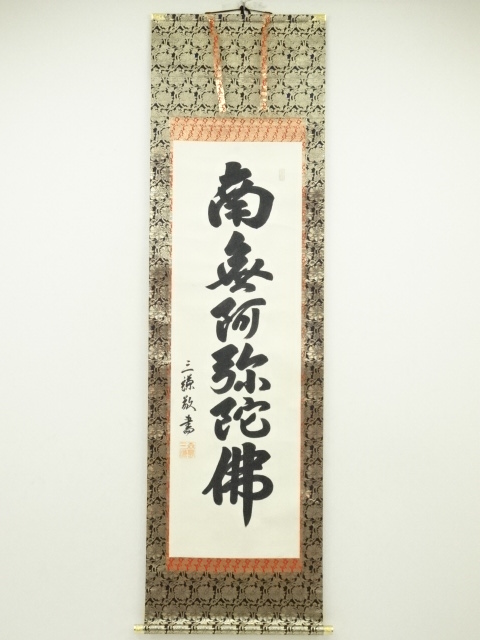 南無阿弥陀佛
三鎌敬書